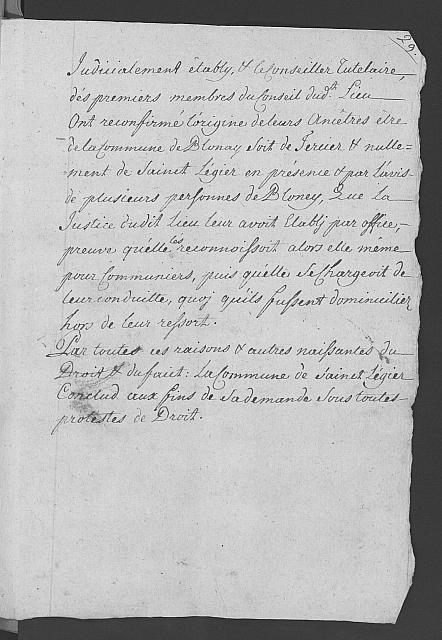 29.
Judicialement êtably, & le Conseiller Tutelaire,
dès premiers membres du Conseil dud.t Lieu
Ont reconfirmé l'origine de leurs Ancêtres être
de la Commune de Blonay soit de Tercier & nulle-
ment de Sainct Légier en présence & par l'avis
de plusieurs personnes de Bloney, Que la
Justice dudit Lieu leur avoit Etablj par office,
preuve qu'elle les reconnoissoit alors elle même
pour Communiers, puis qu'elle se Chargeoit de
leur conduitte, quoy qu'ils fussent domiciliez
hors de leur ressort.
Par toutes ces raisons & autres naissantes du
Droit & du faict: La Commune de Sainct Légier
Conclud aux fins de sa demande sous toutes
protestes de Droit.